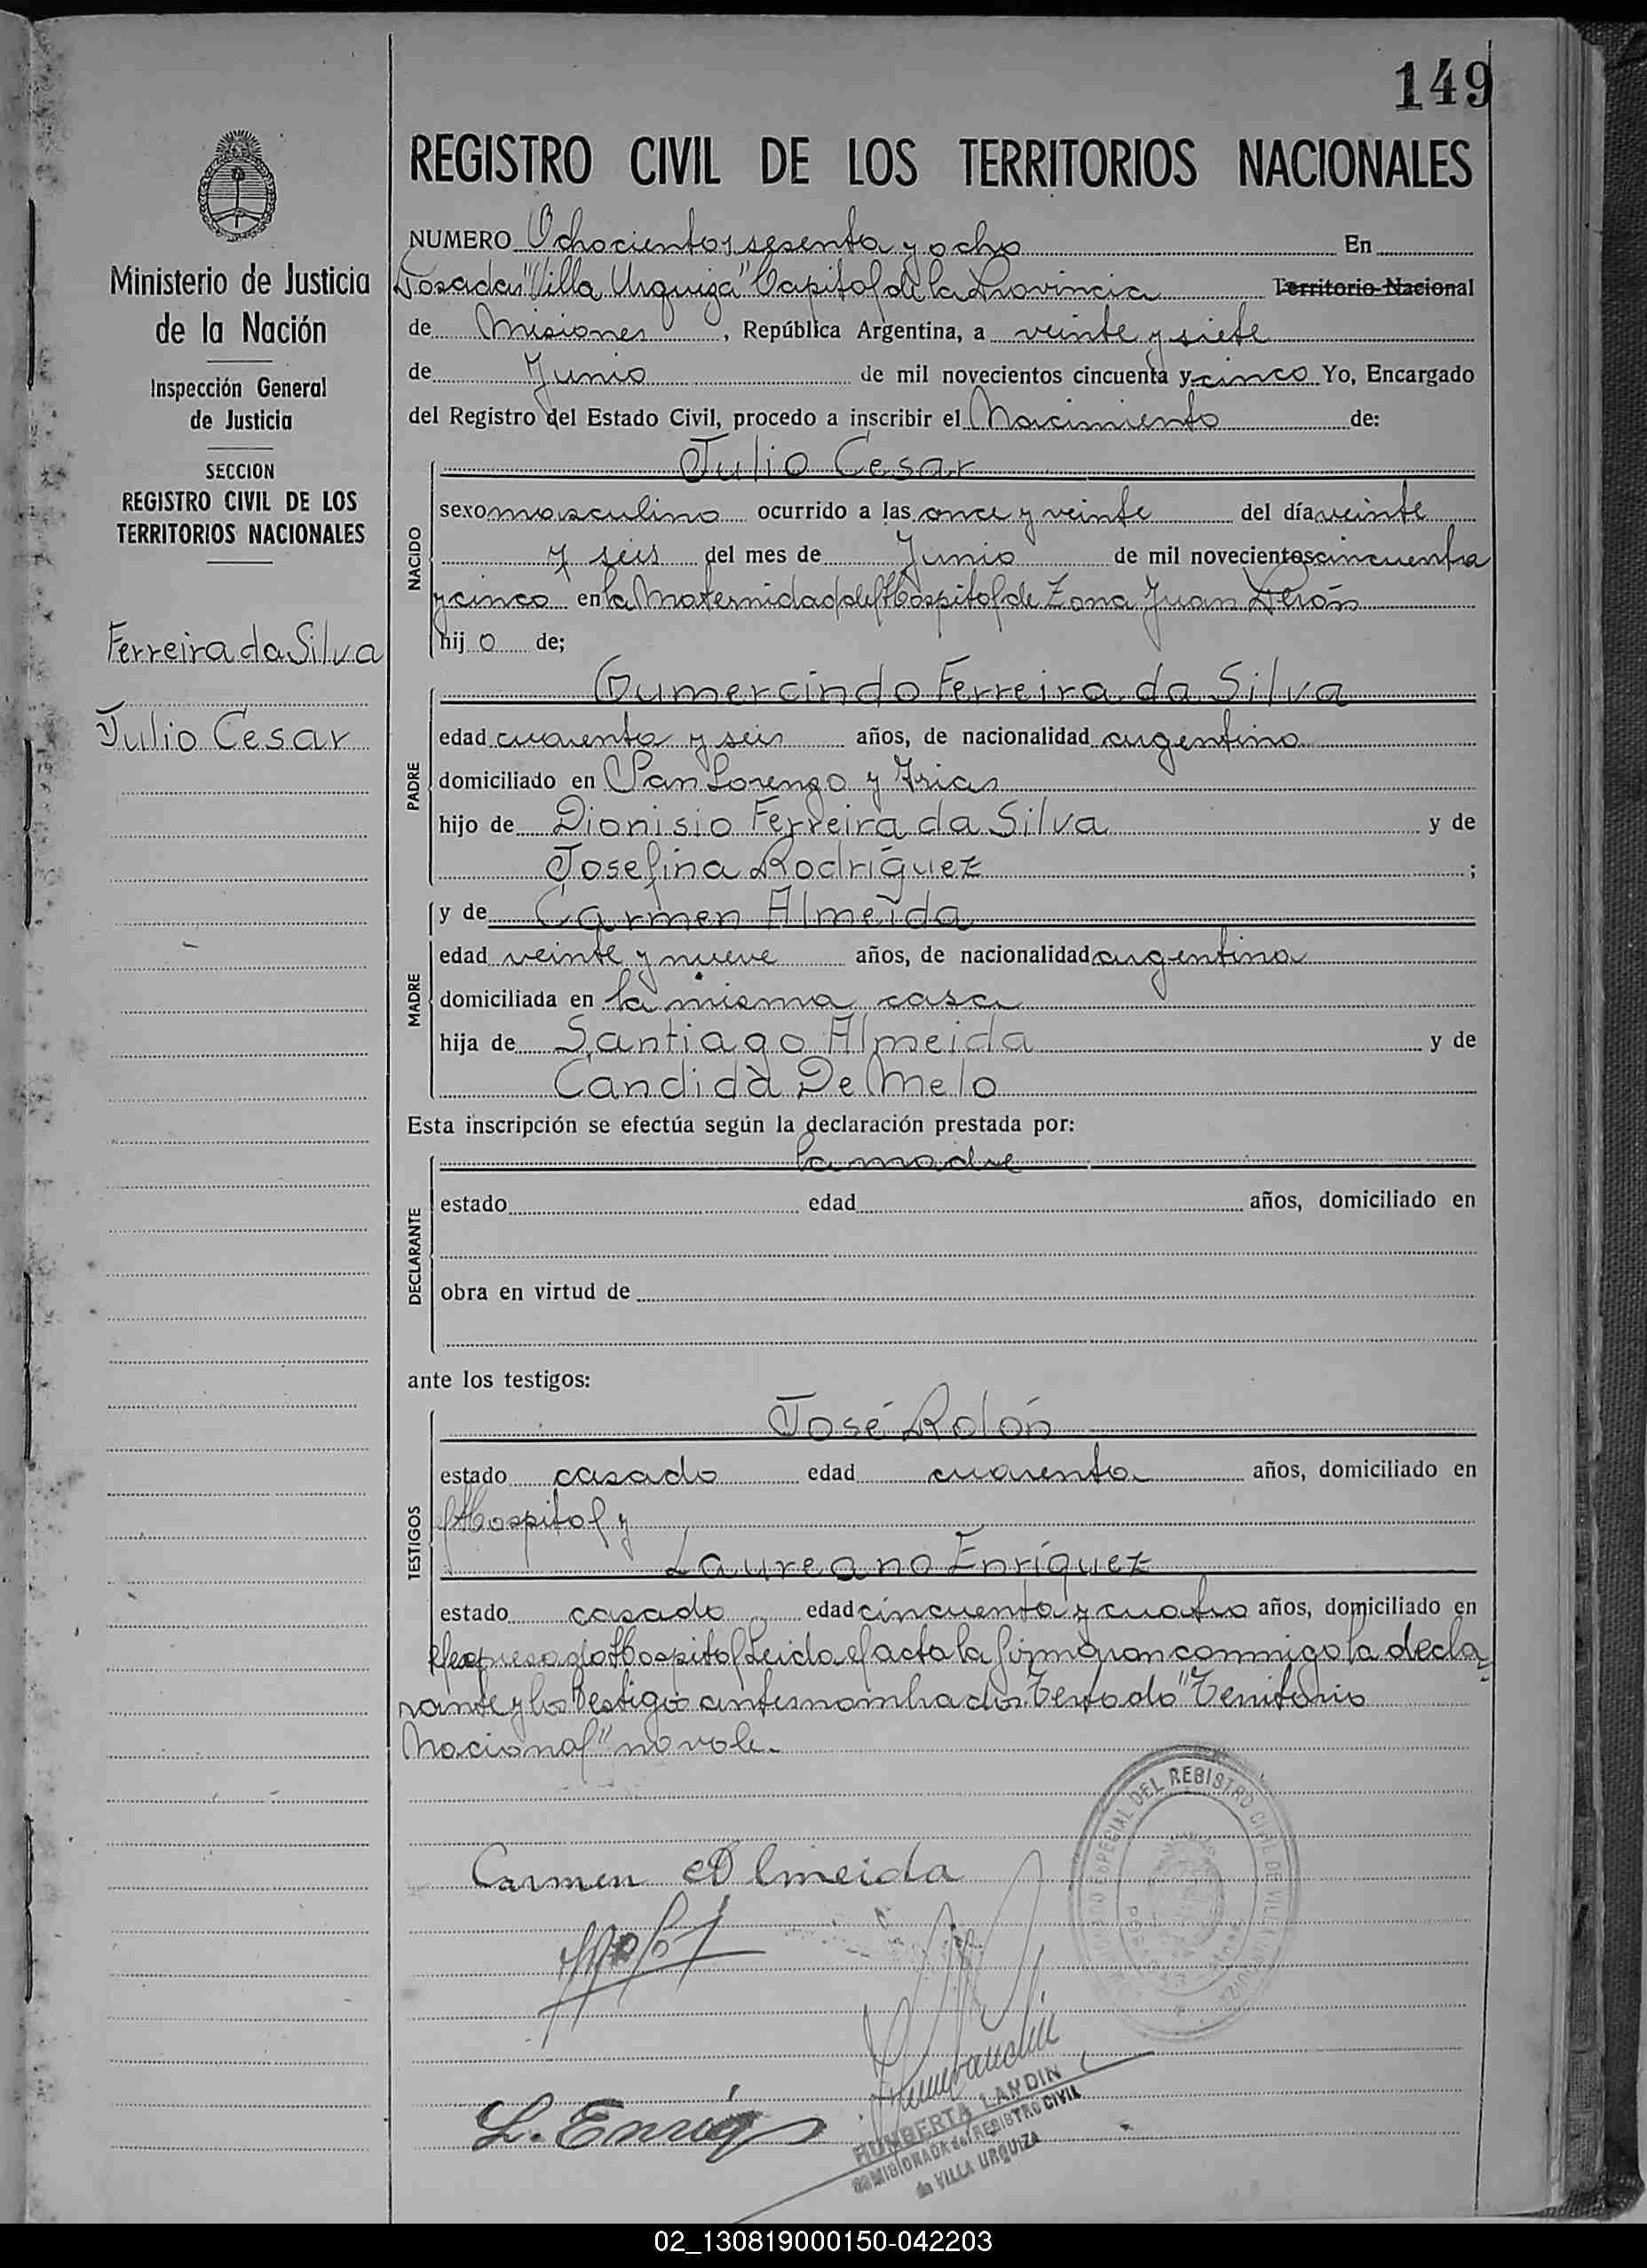 149
REGISTRO CIVIL DE LOS TERRITORIOS NACIONALES
Ministerio de Justicia
de la Nación
Inspección General
de Justicia
SECCION
REGISTRO CIVIL DE LOS
TERRITORIOS NACIONALES
Ferreira da Silva
Julio Cesar
NUMERO Ochocientos sesenta y ocho En
Posadas "Villa Urquiza" Capital de la Provincia Territorio Nacional
de Misiones, República Argentina, a veinte y siete
de Junio de mil novecientos cincuenta y cinco Yo, Encargado
del Registro del Estado Civil, procedo a inscribir el Nacimiento de:
NACIDO
Julio Cesar
sexo masculino ocurrido a las once y veinte del día veinte
y seis del mes de Junio de mil novecientos cincuenta
y cinco en la Maternidad del Hospital de Zona Juan Perón
hij o de;
PADRE
Gumercindo Ferreira da Silva
edad cuarenta y seis años, de nacionalidad argentino
domiciliado en San Lorenzo y Frias
hijo de Dionisio Ferreira da Silva y de
Josefina Rodríguez ;
MADRE
y de Carmen Almeida
edad veinte y nueve años, de nacionalidad argentina
domiciliada en la misma casa
hija de Santiago Almeida y de
Candida De Melo
Esta inscripción se efectúa según la declaración prestada por:
DECLARANTE
la madre
estado edad años, domiciliado en
obra en virtud de
ante los testigos:
TESTIGOS
José Rolón
estado casado edad cuarenta años, domiciliado en
el Hospital y
Laureano Enríquez
estado casado edad cincuenta y cuatro años, domiciliado en
el expresado Hospital Leida el acta la firmaran conmigo la decla
rante y los testigos antes nombrados. Testado "Territorio
Nacional" no vale.
Carmen Almeida
L. Enriq
DEL REGISTRO CIVIL DE VILLA URQUIZA
HUMBERTA LANDIN
COMISIONADA del REGISTRO CIVIL
de VILLA URQUIZA
02_130819000150-042203